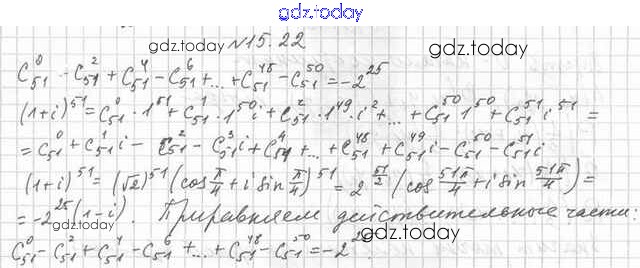 gdz.today
gdz.today №15.22 gdz.today
C₅₁⁰ - C₅₁² + C₅₁⁴ - C₅₁⁶ + ... + C₅₁⁴⁸ - C₅₁⁵⁰ = -2²⁵
(1+i)⁵¹ = C₅₁⁰ · 1⁵¹ + C₅₁¹ · 1⁵⁰i + C₅₁² · 1⁴⁹ · i² + ... + C₅₁⁵⁰ 1 i⁵⁰ + C₅₁⁵¹ i⁵¹ =
= C₅₁⁰ + C₅₁¹ i - C₅₁² - C₅₁³ i + C₅₁⁴ + ... + C₅₁⁴⁸ + C₅₁⁴⁹ i - C₅₁⁵⁰ - C₅₁⁵¹ i
(1+i)⁵¹ = (√2)⁵¹ (cos π/4 + i sin π/4)⁵¹ = 2^(51/2) (cos 51π/4 + i sin 51π/4) =
= -2²⁵ (1-i). Приравняем действительные части:
C₅₁⁰ - C₅₁² + C₅₁⁴ - C₅₁⁶ + ... + C₅₁⁴⁸ - C₅₁⁵⁰ = -2²⁵
gdz.today gdz.today